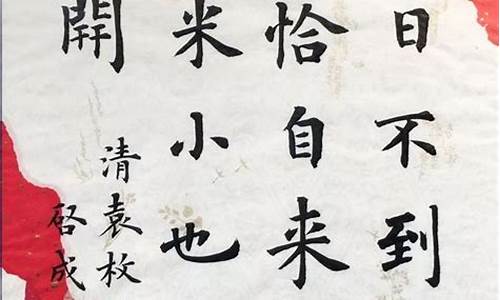 日不到
恰自来
米小也
開
清袁枚
启成